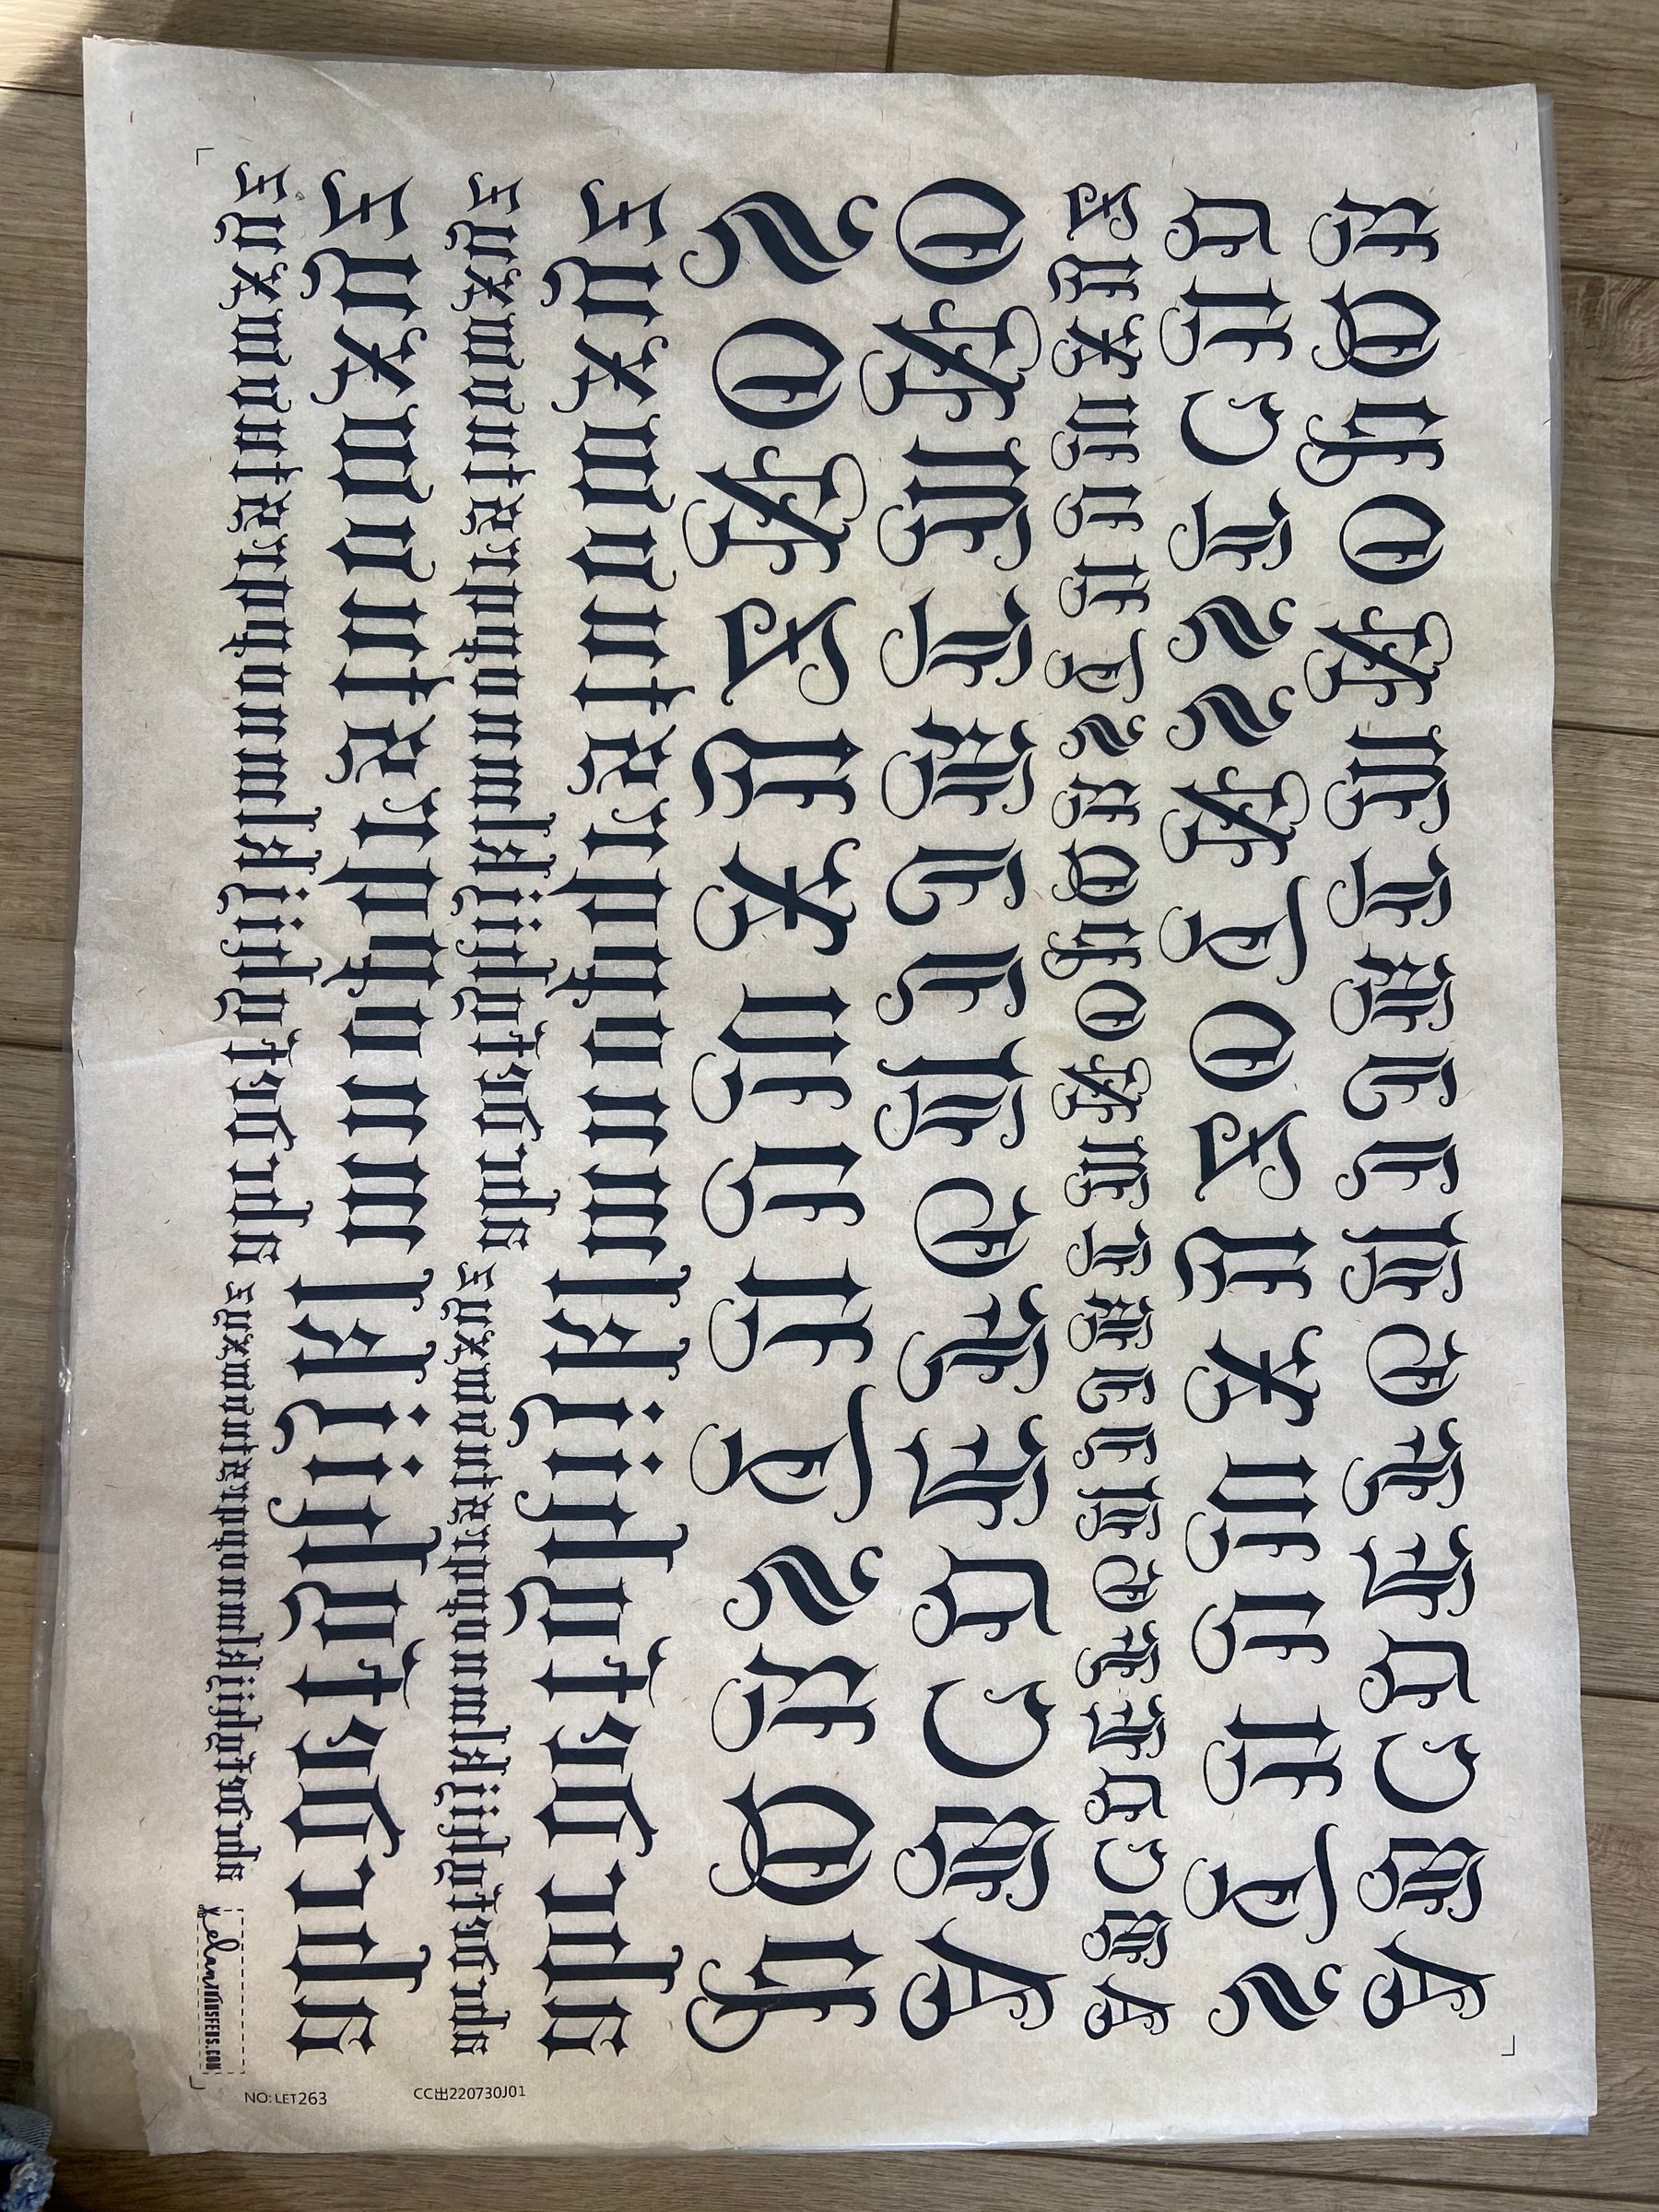 A B C D E F G H I J K L M N O P Q R
S T U V W X Y Z O T N S S L C U D
A B C D E F G H I J K L M N O P Q R S T U V W X Y Z
A B C D E F G H I J K L M N O
P Q R S T U V W X Y Z N O S
a b c d e f g h i j k l m n o p q r s t u v w x y z
a b c d e f g h i j k l m n o p q r s t u v w x y z a b c d e f g h i j k l m n o p q r s t u v w x y z
a b c d e f g h i j k l m n o p q r s t u v w x y z
a b c d e f g h i j k l m n o p q r s t u v w x y z a b c d e f g h i j k l m n o p q r s t u v w x y z
NO: LET263
CC出220730J01